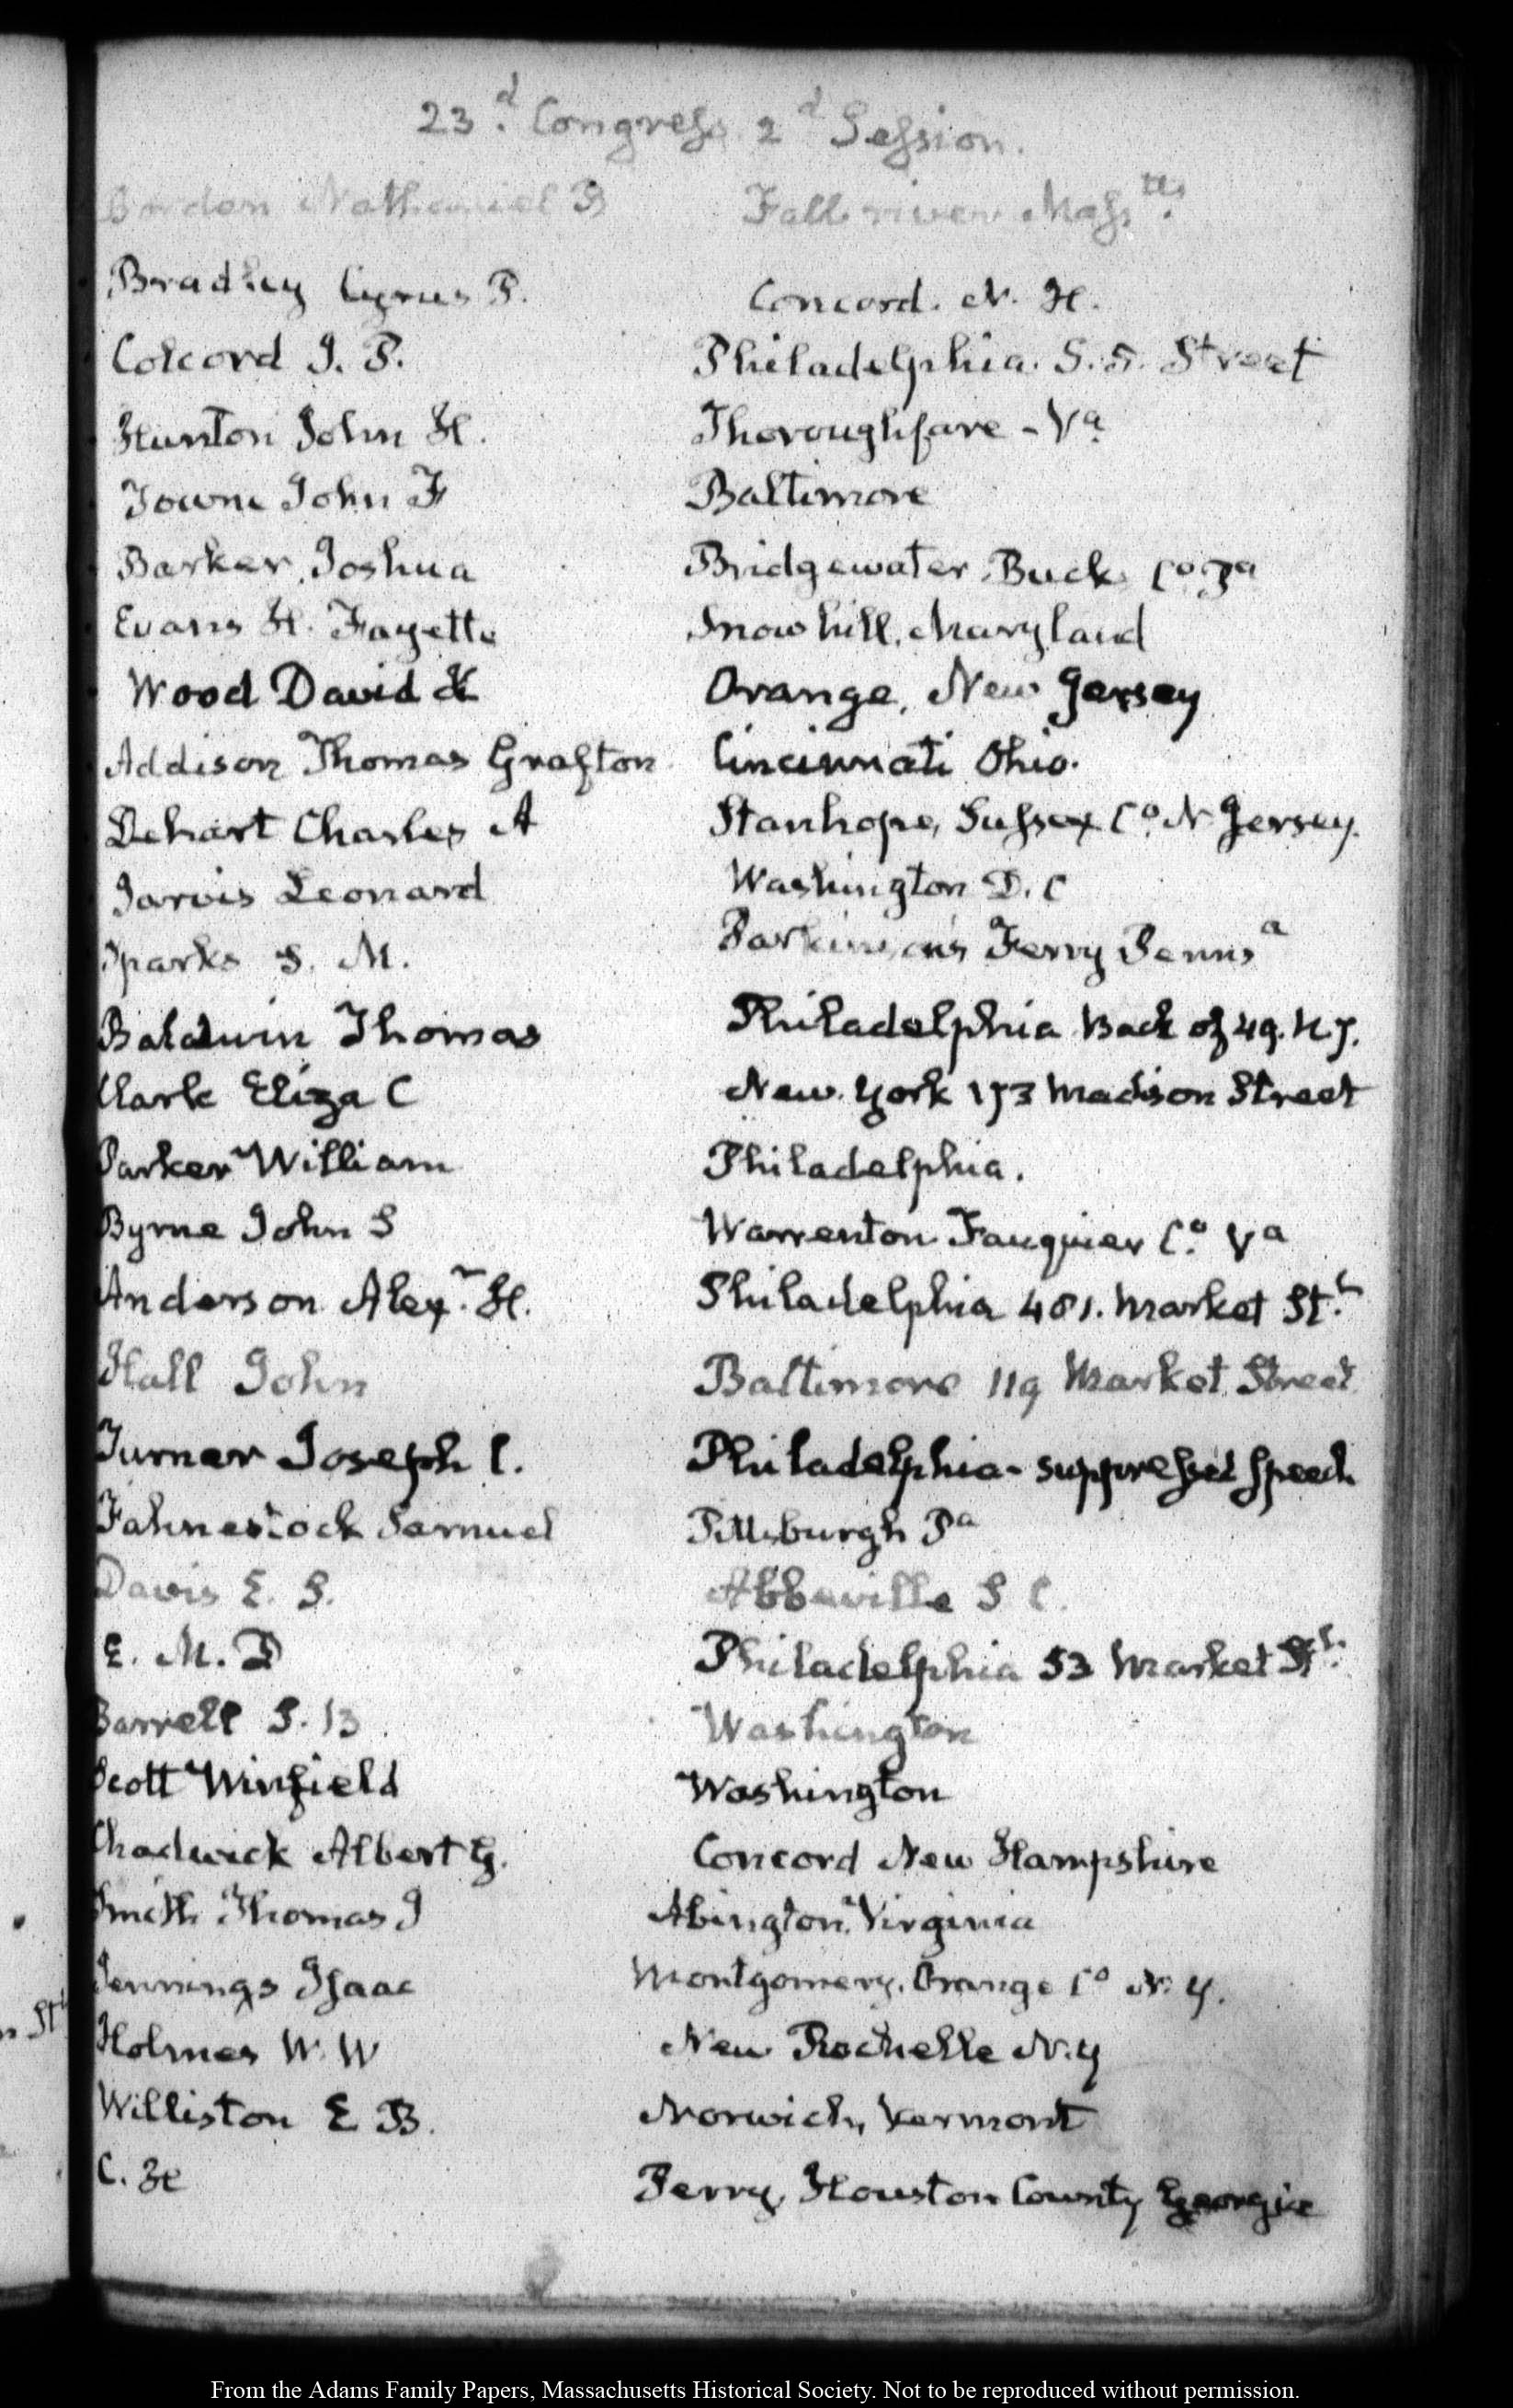 23.d Congress 2d Session.
Borden Nathaniel B Fall river Masstts.
Bradley Cyrus P. Concord. N. H.
Colcord J. P. Philadelphia. S. 5. Street
Hunton John H. Thoroughfare - Va
Towne John F Baltimore
Barker, Joshua Bridgewater, Buck Co Pa
Evans H. Fayette Snow hill, Maryland
Wood David K Orange, New Jersey
Addison Thomas Grafton Cincinnati Ohio.
Dehart Charles A Stanhope, Sussex Co. N Jersey.
Jarvis Leonard Washington D. C
Sparks S. M. Parkinson's Ferry Pennsa
Baldwin Thomas Philadelphia Back of 49. N. 7.
Clark Eliza C New York 173 Madison Street
Parker William Philadelphia.
Byrne John S Warrenton Fauquier Co. Va
Anderson Alexr. H. Philadelphia 481. Market St.t
Hall John Baltimore 119 Market Street
Turner Joseph C. Philadelphia - suppressed speech
Fahnestock Samuel Pittsburgh Pa
Davis E. S. Abbeville S C.
E. M. D Philadelphia 53 Market St.
Barrell S. B Washington
Scott Winfield Washington
Chadwick Albert G. Concord New Hampshire
Smith Thomas J Abington, Virginia
Jennings Isaac Montgomery, Orange Co N. Y.
St
Holmes W. W New Rochelle N. Y
Williston E B. Norwich, Vermont
C. H Perry, Houston County Georgia
From the Adams Family Papers, Massachusetts Historical Society. Not to be reproduced without permission.